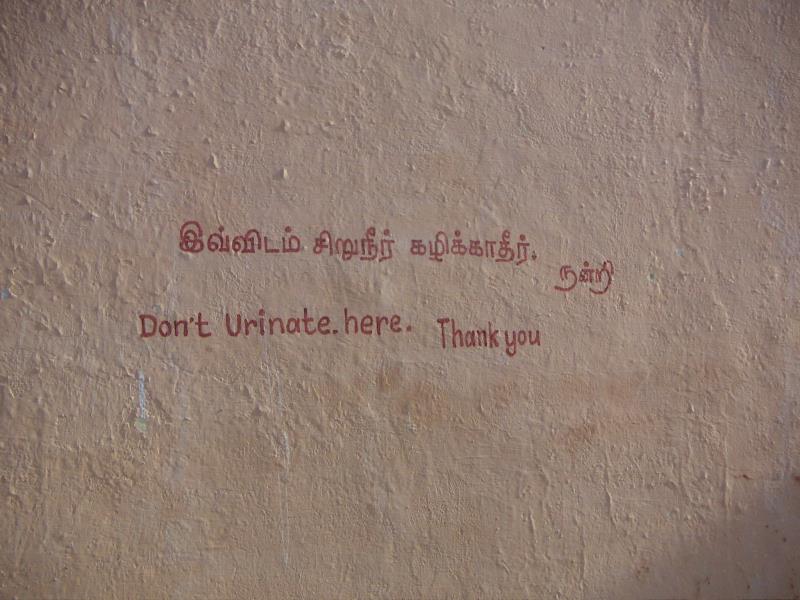 இவ்விடம் சிறுநீர் கழிக்காதீர்.
நன்றி
Don't Urinate.here. Thank you